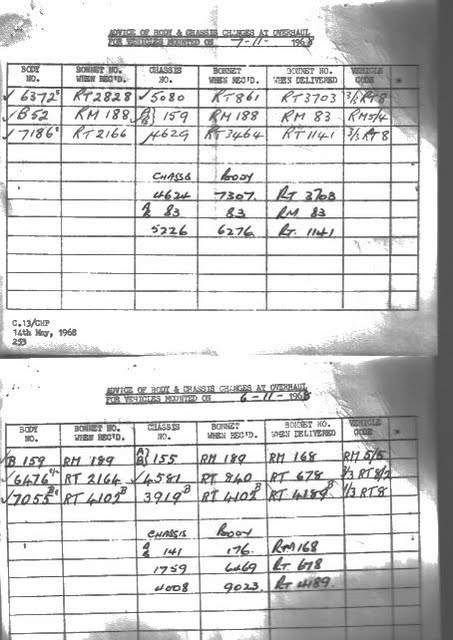 ADVICE OF BODY & CHASSIS CHANGES AT OVERHAUL
FOR VEHICLES MOUNTED ON 7-11- 1968
BODY NO. BONNET NO. WHEN REC'D. CHASSIS NO. BONNET WHEN REC'D. BONNET NO. WHEN DELIVERED VEHICLE CODE *
✓ 6372 RT 2828 ✓ 5080 RT 861 RT 3703 3/2 RT 8
✓ B52 RM 188 A/B 159 RM 188 RM 83 RM 5/4
✓ 7186 RT 2166 4629 RT 3464 RT 1141 3/3 RT 8
CHASSIS BODY
4624 7307. RT 3703
A/B 83 83 RM 83
5226 6276. RT. 1141
C.13/CHP
14th May, 1968
253
ADVICE OF BODY & CHASSIS CHANGES AT OVERHAUL
FOR VEHICLES MOUNTED ON 6-11- 1968
BODY NO. BONNET NO. WHEN REC'D. CHASSIS NO. BONNET WHEN REC'D. BONNET NO. WHEN DELIVERED VEHICLE CODE
✓ B 159 RM 189 A/B 155 RM 189 RM 168 RM 5/5
✓ 6476 RT 2164 ✓ 4581 RT 840 RT 678 3/3 RT 8/2
✓ 7055 RT 4102 B 3919 B RT 4102 B RT 4189 B 1/3 RT 8
CHASSIS BODY
A/B 141 176. RM 168
1759 6469 RT 678
4008 9023. RT 4189.